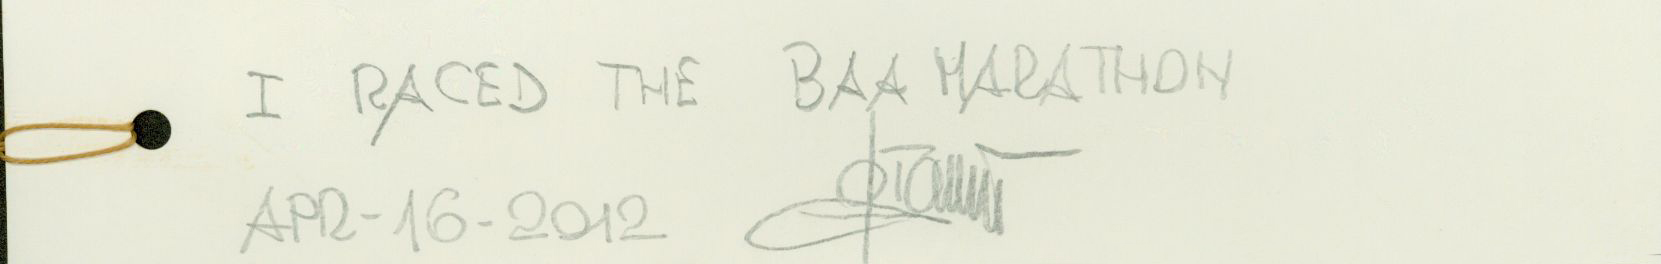 I RACED THE BAA MARATHON
APR-16-2012